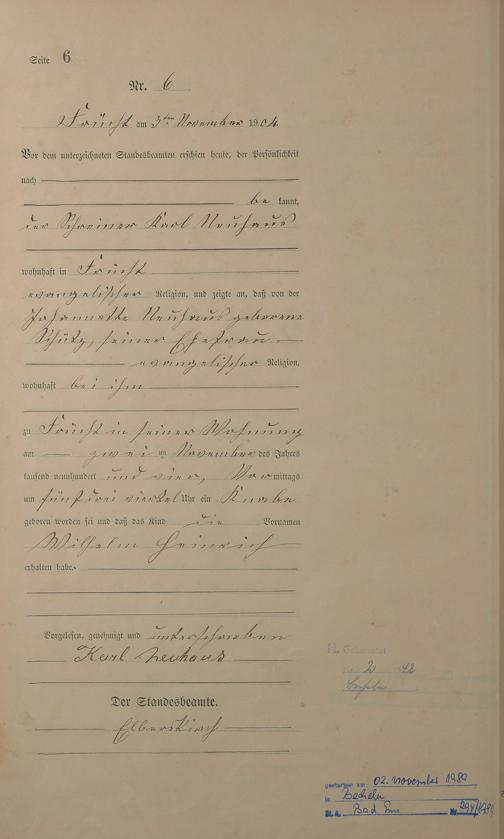 Seite 6
Nr. 6
Frücht am 3ten November 1904.
Vor dem unterzeichneten Standesbeamten erschien heute, der Persönlichkeit
nach
be kannt,
der Schreiner Karl Neuhaus
wohnhaft in Frücht
evangelischer Religion, und zeigte an, daß von der
Johannette Neuhaus geborene
Schütz, seiner Ehefrau
evangelischer Religion,
wohnhaft bei ihm
zu Frücht in seiner Wohnung
am zwei ten November des Jahres
tausend neunhundert und vier, Vor mittags
um fünf drei viertel Uhr ein Knabe
geboren worden sei und daß das Kind die Vornamen
Wilhelm Heinrich
erhalten habe.
Vorgelesen, genehmigt und unterschrieben
Karl Neuhaus
Der Standesbeamte.
Elberskirch
H.
2
gestorben am: 02. November 1989
in Becheln
St. A. Bad Ems Nr.